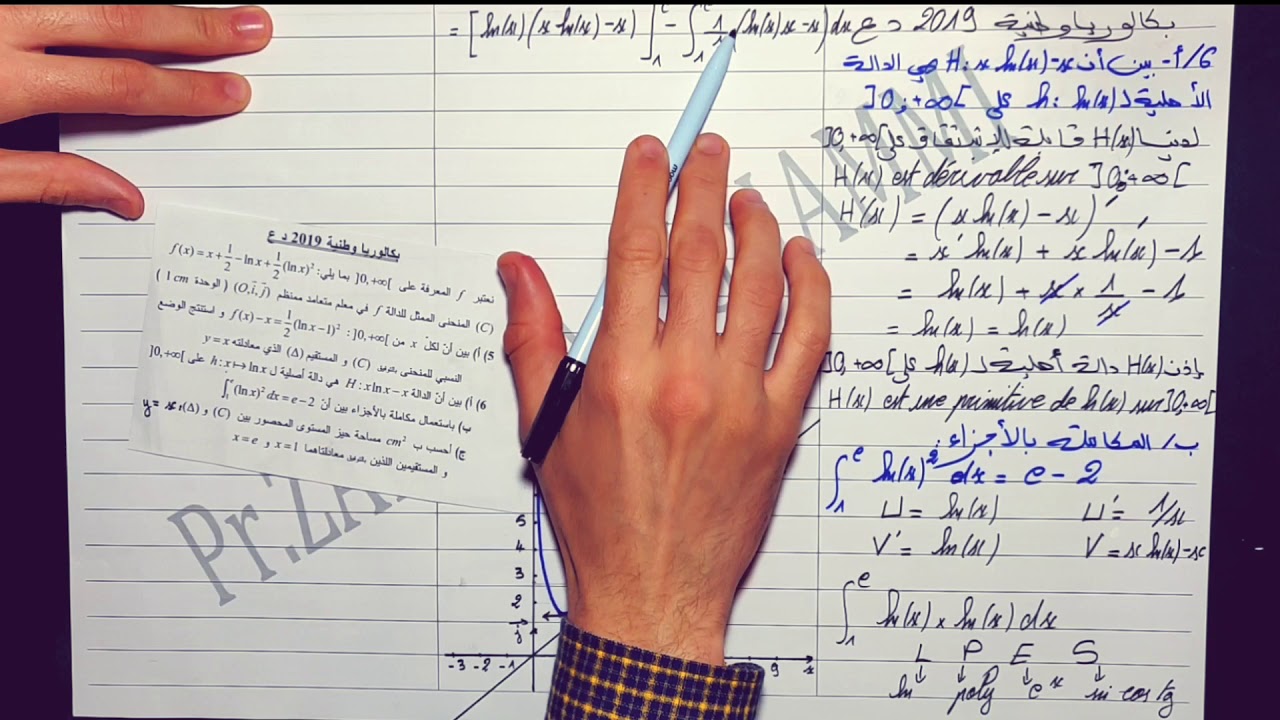 بكالوريا وطنية 2019 د ع
6/أ- بين أن H: x ln(x)-x هي الدالة
الأصلية لـ h: ln(x) على ]0;+∞[
لدينا H(x) قابلة للإشتقاق على ]0,+∞[
H(x) est dérivable sur ]0;+∞[
H'(x) = (x ln(x) - x)'
= x' ln(x) + x ln(x)' - 1
= ln(x) + x × 1/x - 1
= ln(x) = h(x)
إذن H(x) دالة أصلية لـ h(x) على ]0,+∞[
H(x) est une primitive de h(x) sur ]0,+∞[
ب/ المكاملة بالأجزاء :
∫₁ᵉ ln(x)² dx = e - 2
U = ln(x) U' = 1/x
V' = ln(x) V = x ln(x)-x
∫₁ᵉ ln(x) × ln(x) dx
L P E S
ln poly eˣ sin cos tg
= [ln(x)(x ln(x)-x)]₁ᵉ - ∫₁ᵉ (ln(x)x-x)dx
بكالوريا وطنية 2019 د ع
نعتبر f المعرفة على ]0,+∞[ بما يلي: f(x)=x+1/2-ln x+1/2(ln x)²
(C) المنحنى الممثل للدالة f في معلم متعامد ممنظم (O,i,j) (الوحدة 1 cm)
5) أ) بين أن لكل x من ]0,+∞[ : f(x)-x=1/2(ln x-1)² و استنتج الوضع
النسبي للمنحنى (C) و المستقيم (Δ) الذي معادلته y=x
6) أ) بين أن الدالة H: x ln x-x هي دالة أصلية ل h:x↦ln x على ]0,+∞[
ب) باستعمال مكاملة بالأجزاء بين أن ∫₁ᵉ(ln x)²dx=e-2
ج) أحسب ب cm² مساحة حيز المستوى المحصور بين (C) و (Δ) y = x
و المستقيمين اللذين بالتوفيق معادلتاهما x=1 و x=e
Pr.ZA
AMMI
5
4
3
2
j
-3 -2 -1 9 x